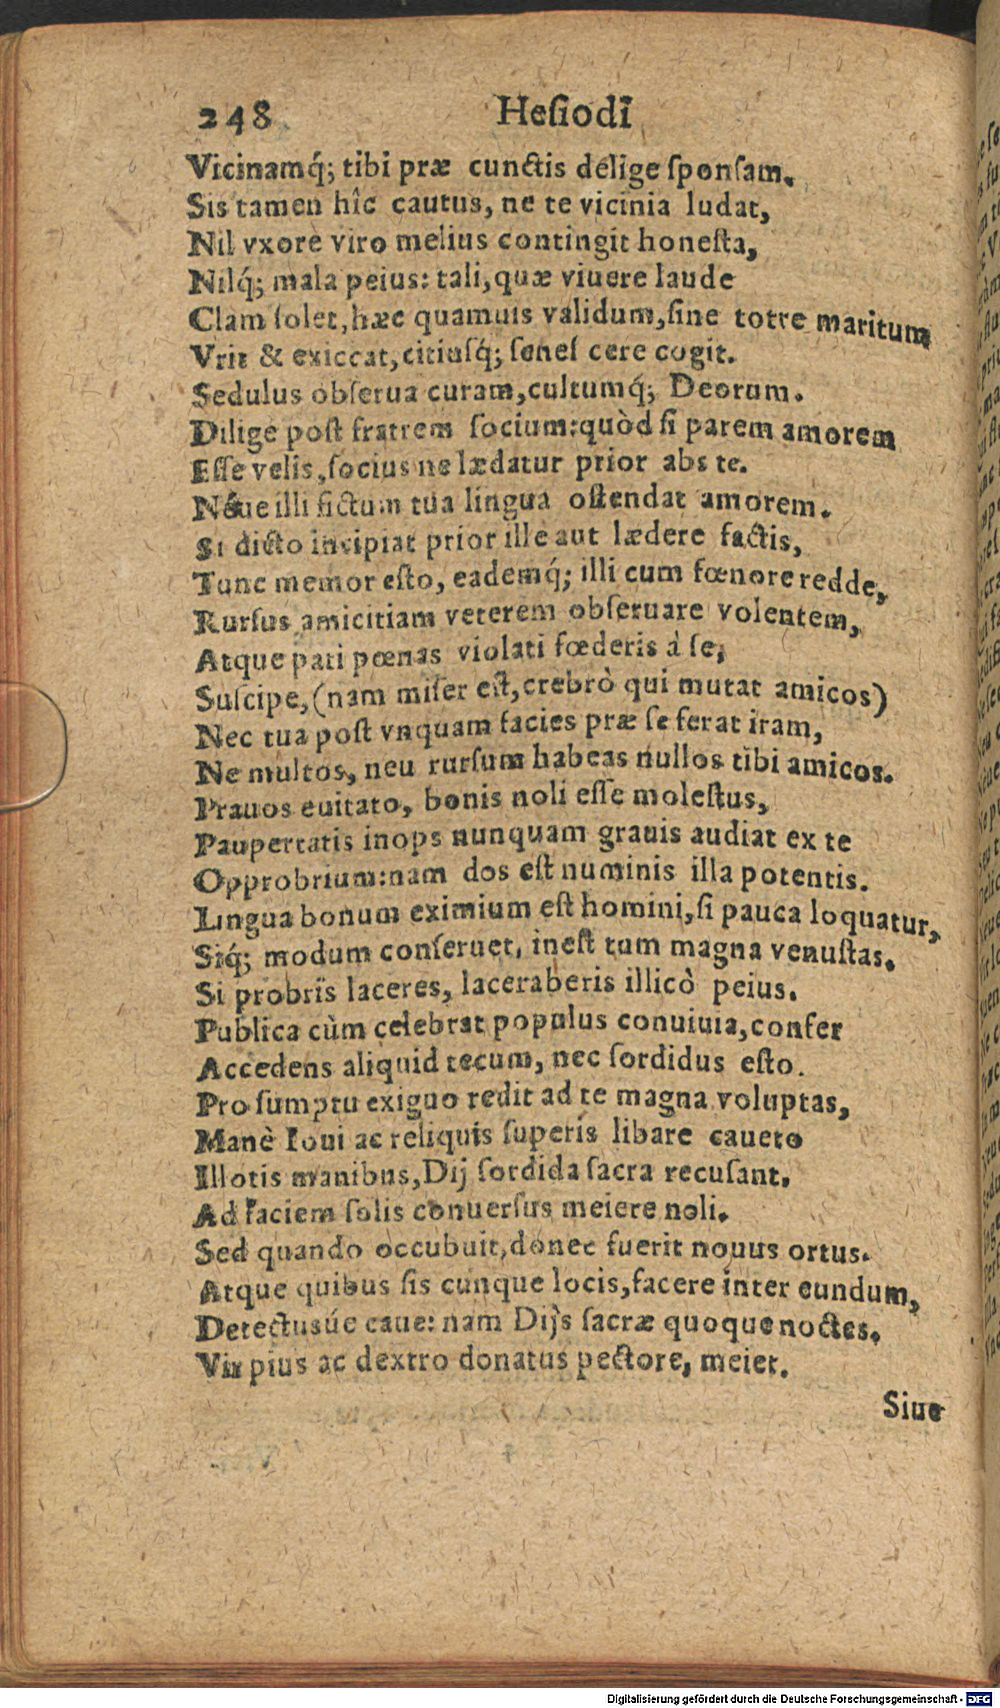 248 Heſiodi
Vicinamq́; tibi præ cunctis delige ſponſam.
Sis tamen hîc cautus, ne te vicinia ludat,
Nil vxore viro melius contingit honeſta,
Nilq́; mala peius: tali, quæ viuere laude
Clam ſolet, hæc quamuis validum, ſine torre maritum
Vrit & exiccat, citiuſq́; ſeneſcere cogit.
Sedulus obſerua curam, cultumq́; Deorum.
Dilige poſt fratrem ſocium: quòd ſi parem amorem
Eſſe velis, ſocius ne lædatur prior abs te.
Néue illi fictum tua lingua oſtendat amorem.
Si dicto incipiat prior ille aut lædere factis,
Tunc memor eſto, eademq́; illi cum fœnore redde,
Rurſus amicitiam veterem obſeruare volentem,
Atque pati pœnas violati fœderis à ſe,
Suſcipe, (nam miſer eſt, crebrò qui mutat amicos)
Nec tua poſt vnquam facies præ ſe ferat iram,
Ne multos, neu rurſum habeas nullos tibi amicos.
Prauos euitato, bonis noli eſſe moleſtus,
Paupertatis inops nunquam grauis audiat ex te
Opprobrium: nam dos eſt numinis illa potentis.
Lingua bonum eximium eſt homini, ſi pauca loquatur,
Siq́; modum conſeruet, ineſt tum magna venuſtas.
Si probris laceres, laceraberis illicò peius.
Publica cùm celebrat populus conuiuia, confer
Accedens aliquid tecum, nec ſordidus eſto.
Pro ſumptu exiguo redit ad te magna voluptas,
Manè Ioui ac reliquis ſuperis libare caueto
Illotis manibus, Dij ſordida ſacra recuſant.
Ad faciem ſolis conuerſus meiere noli.
Sed quando occubuit, donec fuerit nouus ortus.
Atque quibus ſis cunque locis, facere inter eundum,
Detectusúe caue: nam Dijs ſacræ quoque noctes.
Vir pius ac dextro donatus pectore, meiet.
Siue
Digitalisierung gefördert durch die Deutsche Forschungsgemeinschaft - DFG